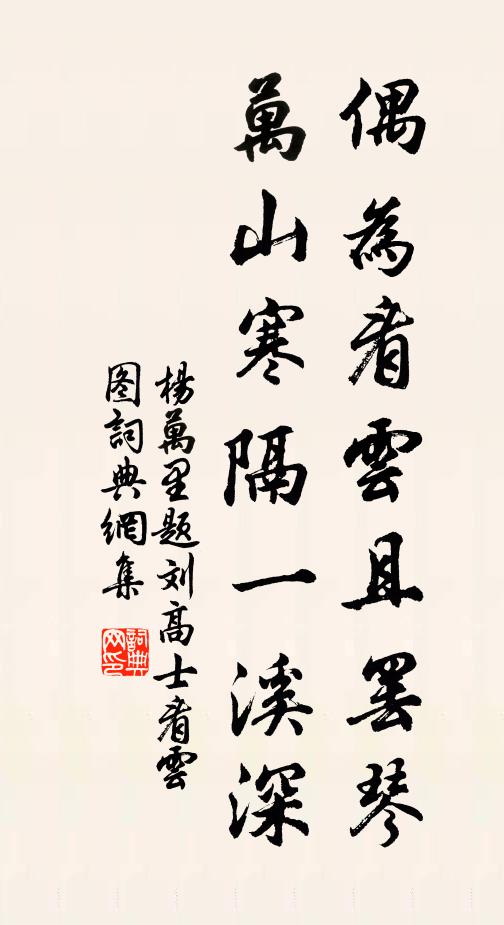 偶為看雲且罷琴
萬山寒隔一溪深
楊萬里題刘高士看雲
图詞典網集
詞典
网印